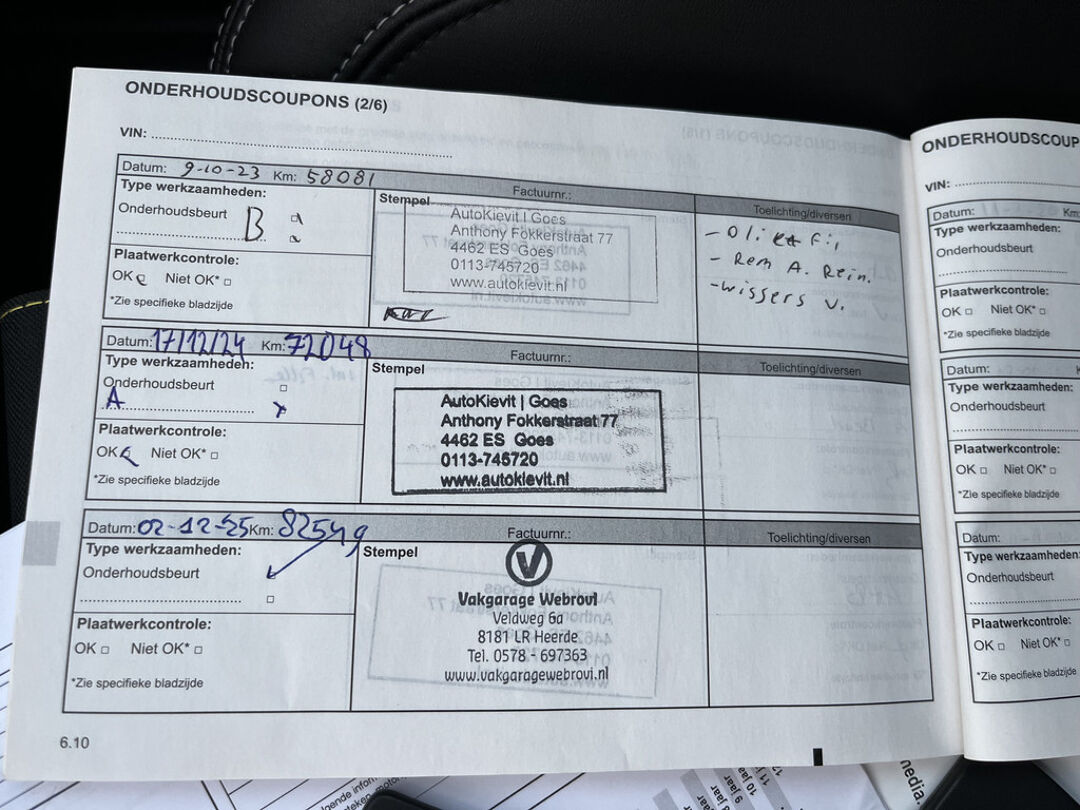 ONDERHOUDSCOUPONS (2/6)
VIN:
Datum: 9-10-23 Km: 58081
Type werkzaamheden:
Onderhoudsbeurt B
Plaatwerkcontrole:
OK Niet OK*
*Zie specifieke bladzijde
Factuurnr.:
Stempel
AutoKievit | Goes
Anthony Fokkerstraat 77
4462 ES Goes
0113-745720
www.autokievit.nl
Toelichting/diversen
- Olie
- Rem A. Rein.
- wissers v.
Datum: 17/12/24 Km: 72048
Type werkzaamheden:
Onderhoudsbeurt
A x
Plaatwerkcontrole:
OK Niet OK*
*Zie specifieke bladzijde
Factuurnr.:
Stempel
AutoKievit | Goes
Anthony Fokkerstraat 77
4462 ES Goes
0113-745720
www.autokievit.nl
Toelichting/diversen
Datum: 02-12-25 Km: 82549
Type werkzaamheden:
Onderhoudsbeurt
Plaatwerkcontrole:
OK Niet OK*
*Zie specifieke bladzijde
Factuurnr.:
Stempel
V
Vakgarage Webrovi
Veldweg 6a
8181 LR Heerde
Tel. 0578 - 697363
www.vakgaragewebrovi.nl
Toelichting/diversen
6.10
ONDERHOUDSCOUP
VIN:
Datum: Km
Type werkzaamheden:
Onderhoudsbeurt
Plaatwerkcontrole:
OK Niet OK*
*Zie specifieke bladzijde
Datum:
Type werkzaamheden:
Onderhoudsbeurt
Plaatwerkcontrole:
OK Niet OK*
*Zie specifieke bladzijde
Datum:
Type werkzaamheden:
Onderhoudsbeurt
Plaatwerkcontrole:
OK Niet OK*
*Zie specifieke bladzijde
11 jaar
10 jaar
9 jaar
8 jaar